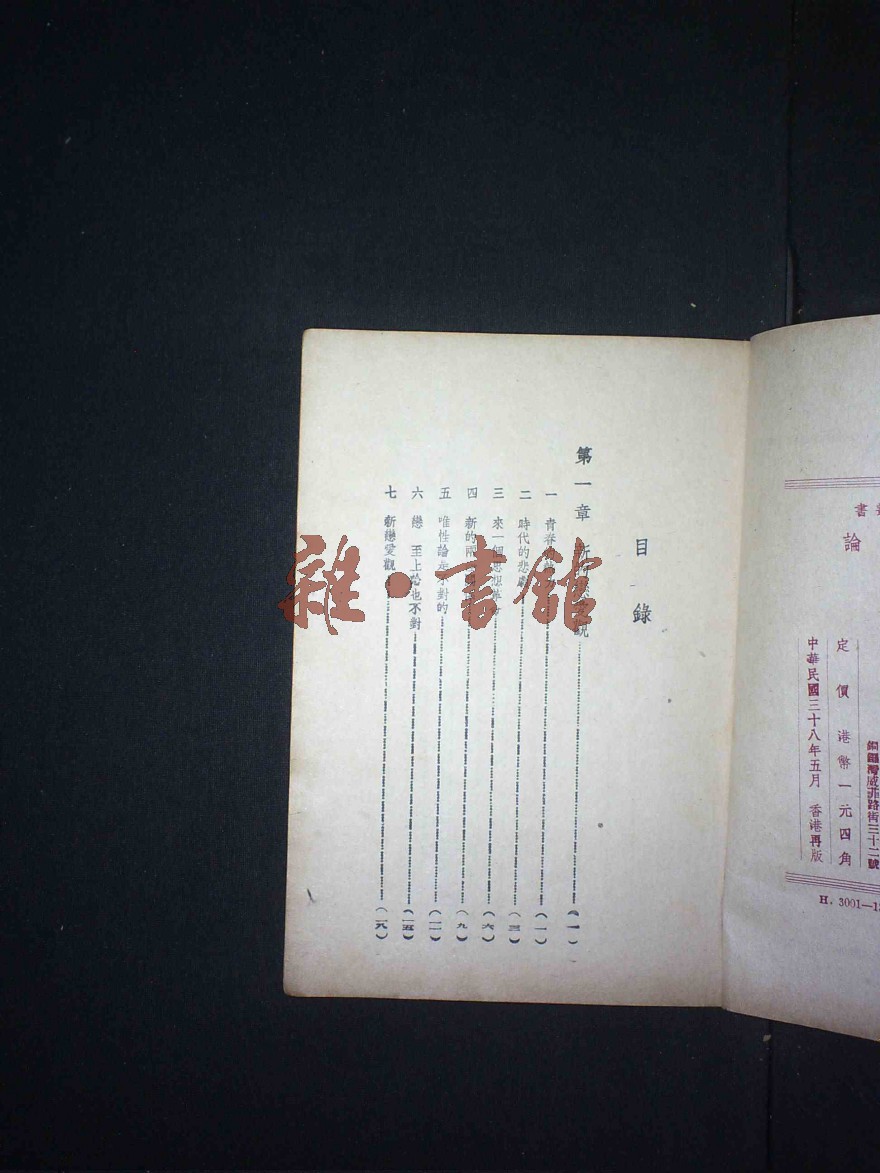 書
論
銅鑼灣威菲路街三十二號
定價港幣一元四角
中華民國三十八年五月 香港再版
H. 3001—1
目錄
第一章 新 觀 (一)
一 青春 (一)
二 時代的悲劇 (三)
三 來一個思想革命 (六)
四 新的兩 (九)
五 唯性論是不對的 (一一)
六 戀 至上論也不對 (一五)
七 新戀愛觀 (一八)
雜·書館